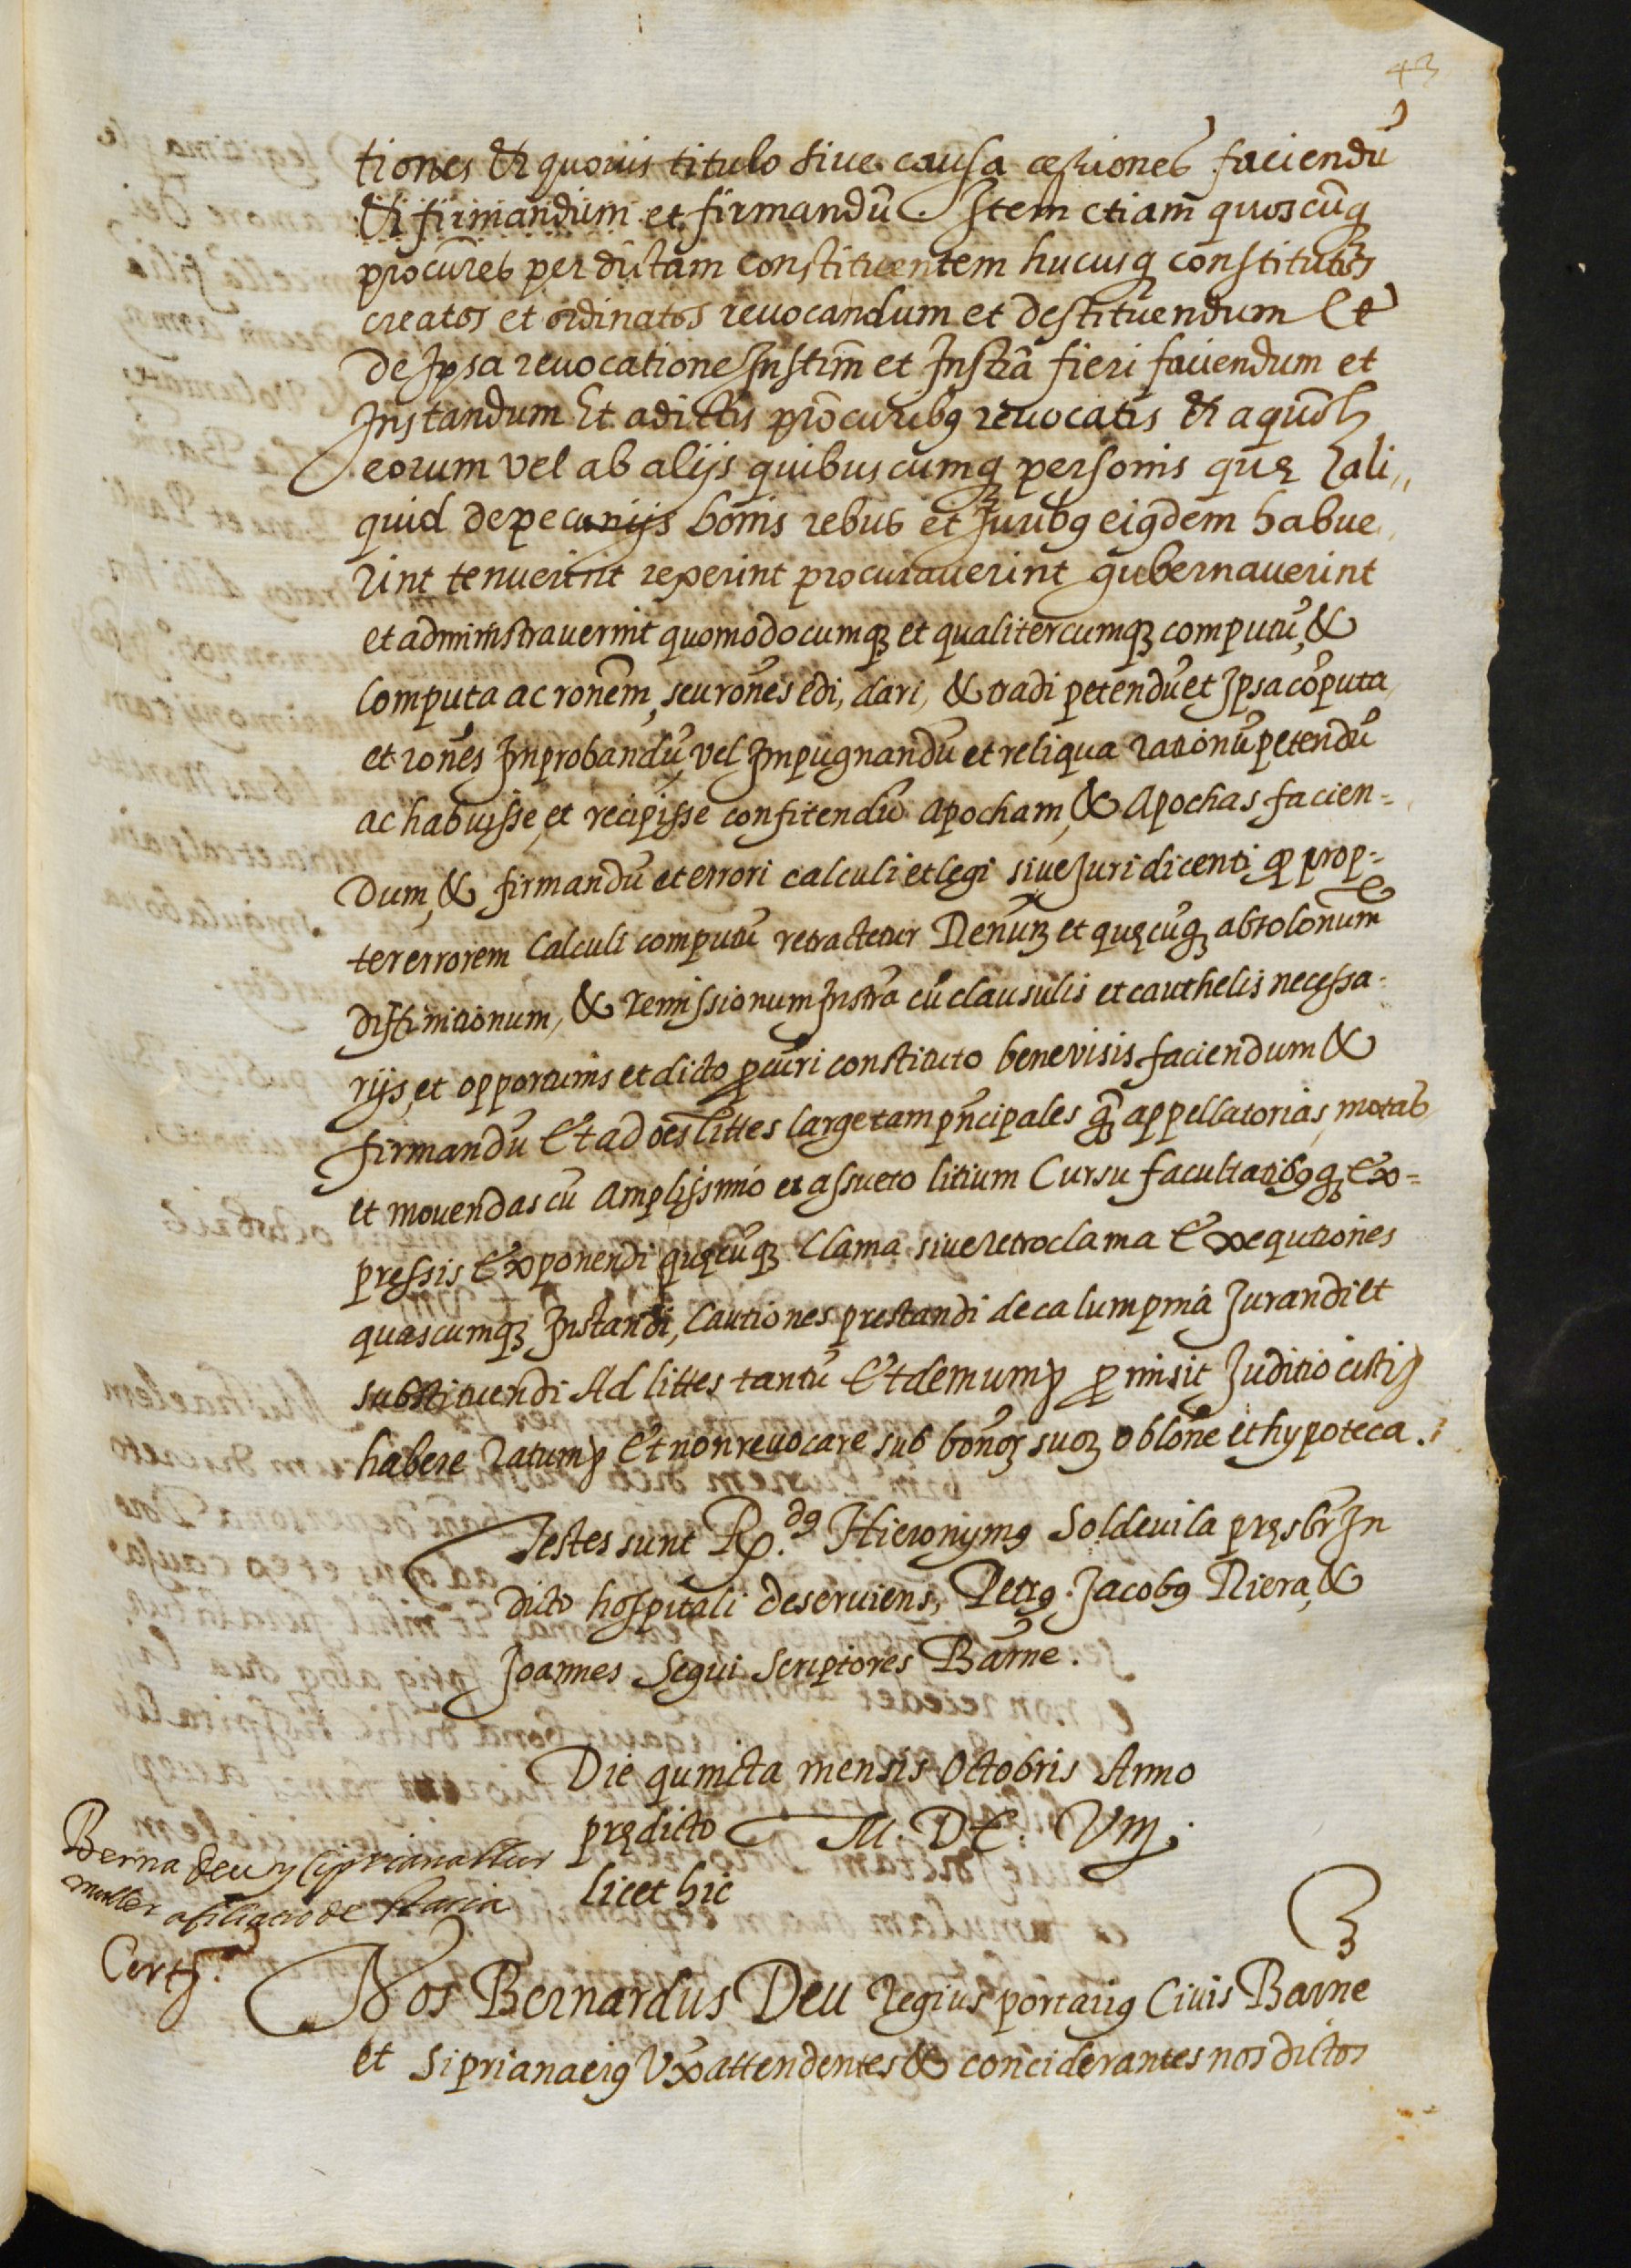 43
tiones & quovis titulo sive causa cessiones faciendū
& firmandum et firmandū. Item etiam quoscūq
procures per dictam constituentem hucusq constitutos
creatos et ordinatos revocandum et destituendum Et
de Ipsa revocatione Instrm̄ et Instrā fieri faciendum et
Instandum Et a dictis procuribꝯ revocatis & a quolꝫ
eorum vel ab alijs quibuscumqꝫ personis quę ali„
quid de pecunijs bonis rebus et Juribꝯ eiꝯdem habue„
rint tenuerint reperint procuraverint gubernaverint
et administraverint quomodocumqꝫ et qualitercumqꝫ computū, &
computa ac ronem, seu rones edi, dari, & tradi petendū et Ipsa cōputa
et rones Improbandū, vel Impugnandū et reliqua rationū petendū
ac habuisse, et recipisse confitendū Apocham, & Apochas facien=
dum, & firmandū et errori calculi et legi sive Juri dicenti, qꝫ prop=
ter errorem Calculi computū retractetur Denuꝫ et quęcūqꝫ absolonum
diffinitionum, & remissionum Instra cū clausulis et cauthelis necessa-
rijs, et opportunis et dicto ꝓcuri constituto bene visis faciendum &
firmandū Et ad oēs littes large tam pñcipales qꝫ appellatorias, motas
et movendas cū Amplissimo et assueto litium Cursu facultatibꝯqꝫ Ex=
pressis Exponendi quęcūqꝫ Clama sive retroclama Exequtiones
quascumqꝫ Instandi, Cautiones prestandi de calumpnia Jurandi et
substituendi Ad littes tantū Et demum ꝓmisit Juditio cisti
habere ratum Et non revocare sub bonoꝝ suoꝝ oblone et hypoteca.
Testes sunt R.dꝯ Hieronymꝯ Soldevila pręsbr̄ In
dicto hospitali deserviens, Petrꝯ Jacobꝯ Riera, &
Joannes Segui Scriptores Barn̄e.
Die quincta mensis Octobris Anno
prędicto M. DC. VIIIJ.
licet hic
Berna Deu y Cipriana
muller afiliatio de Maria
Certf.
Nos Bernardus Deu Regius portariꝯ Civis Barne
et Siprianaeiꝯ Vx attendentes & conciderantes nos dictos